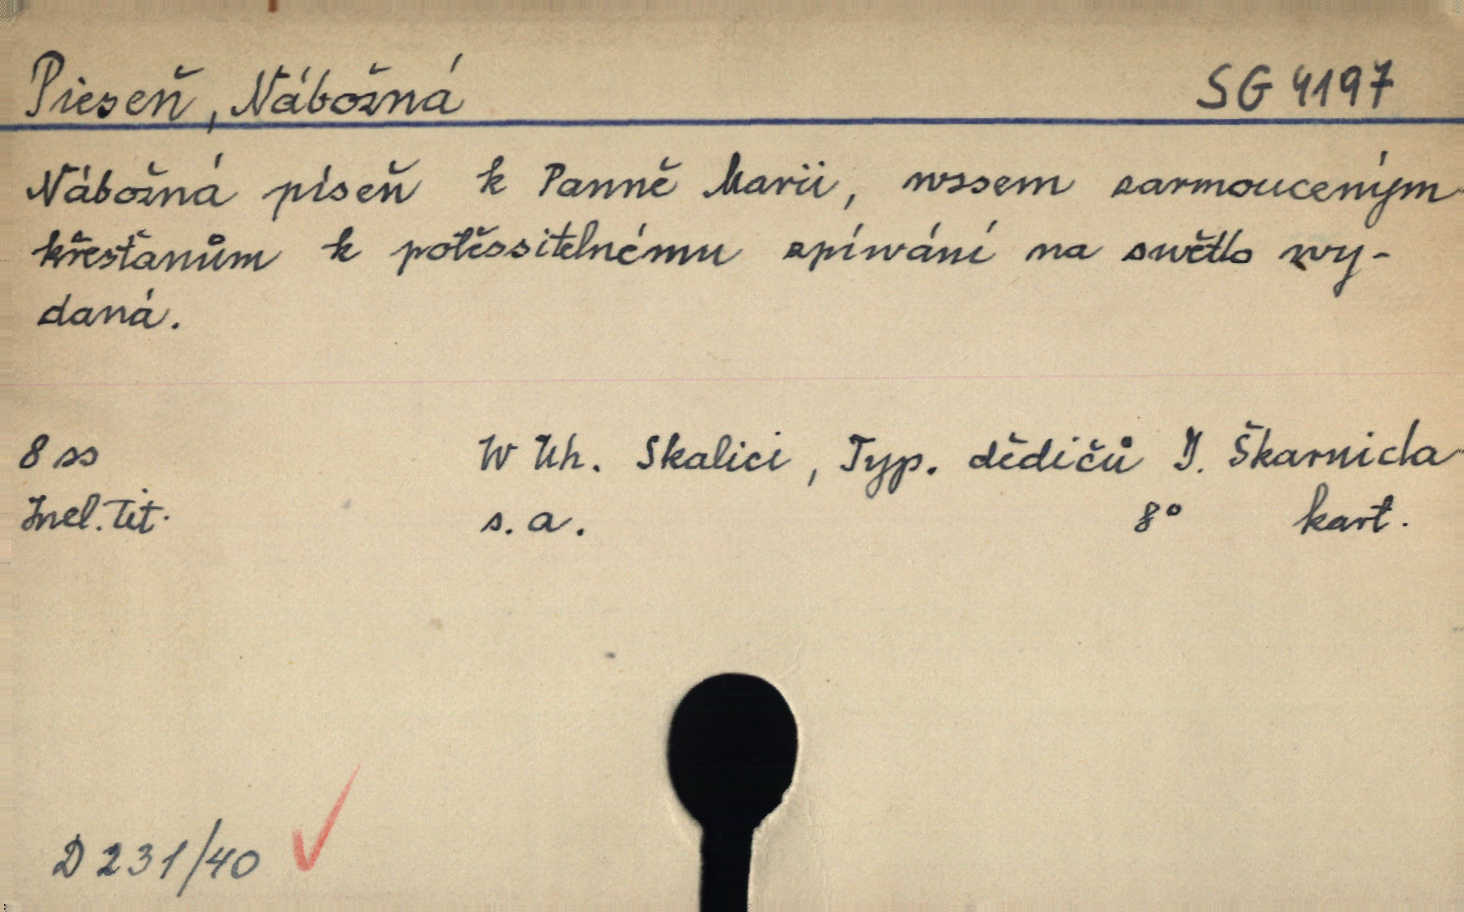 Pieseň, Nábožná SG 4197
Nábožná píseň k Panně Marii, wssem zarmouceným
křesťanům k potěssitelnému zpíwání na swětlo wy-
daná.
8 ss W Uh. Skalici, Typ. dědičů J. Škarnicla
Incl. Tit. s. a. 8° kart.
D 231/40